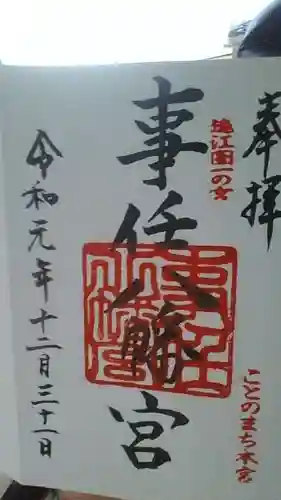 奉拝
遠江国一の宮
ことのまち本宮
事任八幡宮
令和元年十二月三十一日